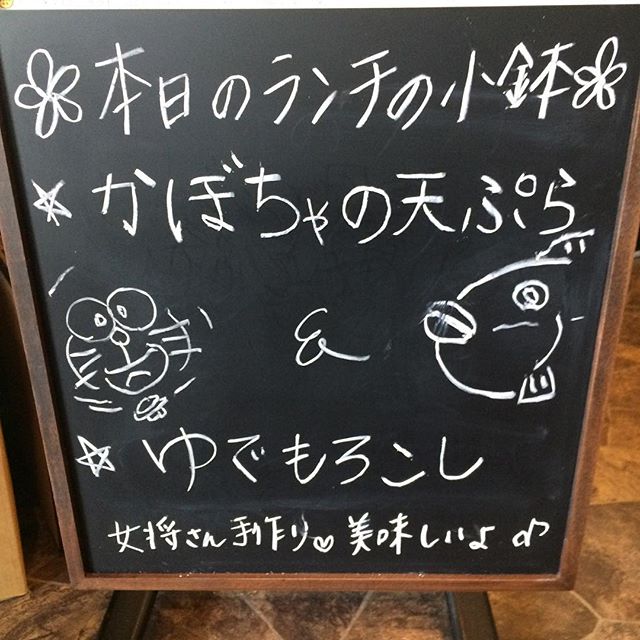 本日のランチの小鉢
☆かぼちゃの天ぷら
&
☆ゆでもろこし
女将さん手作り♡美味しいよ♪